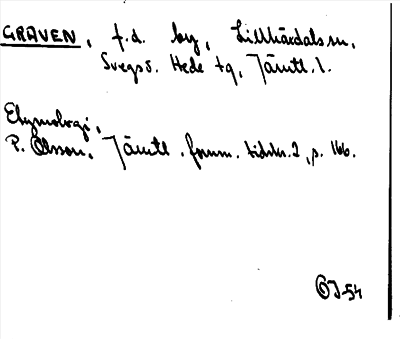 GRAVEN, f.d. by, Lillhärdals sn,
Svegs s. Hede tg, Jämtl. l.
Etymologi,
P. Olsson, Jämtl. fornm. tidskr. 2, s. 166.
OJ-54